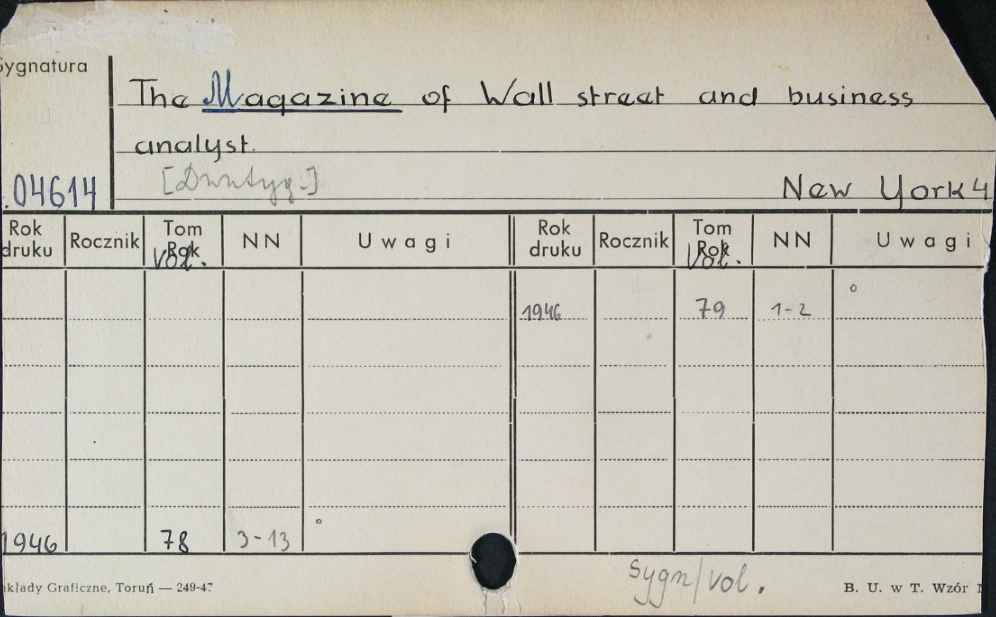 Sygnatura
The Magazine of Wall street and business
analyst.
[Dwutyg.]
04614
New York 4
Rok druku Rocznik Tom Rok Vol. NN Uwagi Rok druku Rocznik Tom Rok Vol. NN Uwagi
1946 79 1-2 °
1946 78 3-13 °
sygn/vol.
kłady Graficzne, Toruń — 249-47 B. U. w T. Wzór